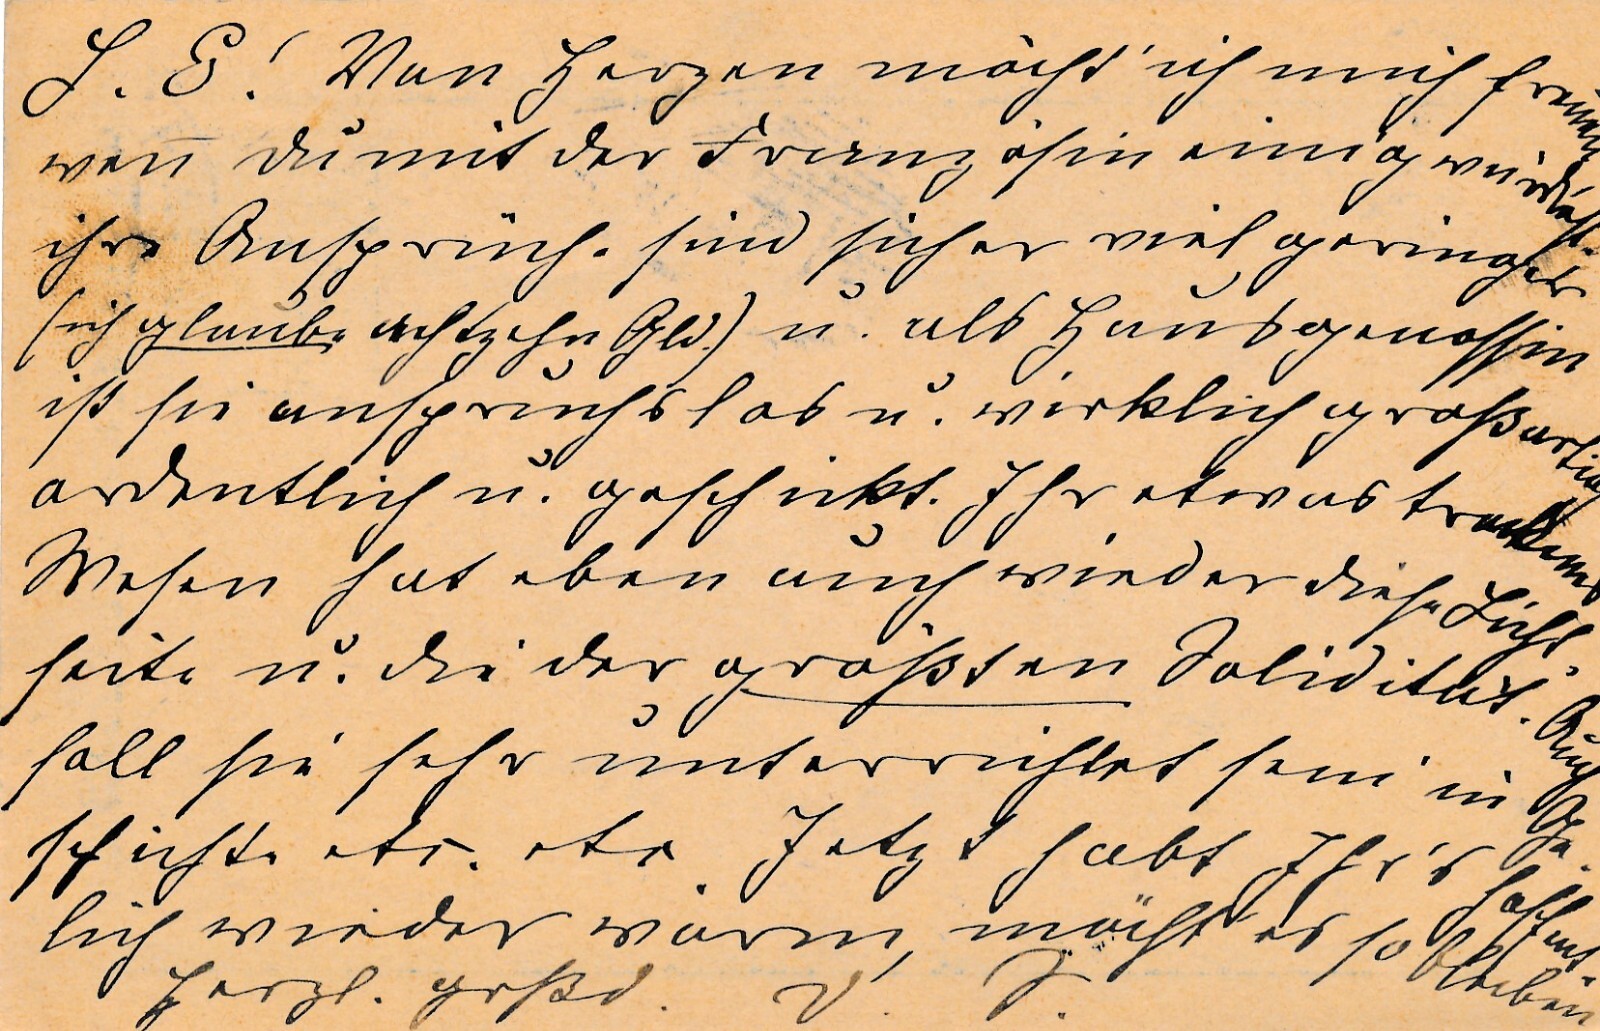 L. E.! Von Herzen möcht' ich mich freuen
wen̄ du mit der Französin einig würdest.
ihre Ansprüche sind sicher viel geringer
(ich glaube achtzehn Gld.) u. als Hausgenossin
ist sie anspruchslos u. wirklich großartig
ordentlich u. geschickt. Ihr etwas trockenes
Wesen hat eben auch wieder diese Licht-
seite u. die der größten Solidität. Auch
soll sie sehr unterrichtet sein in Ge-
schichte etc. etc. Jetzt habt Ihr's hoffent-
lich wieder warm, möcht' es so bleiben
Herzl. grßd. D. S.